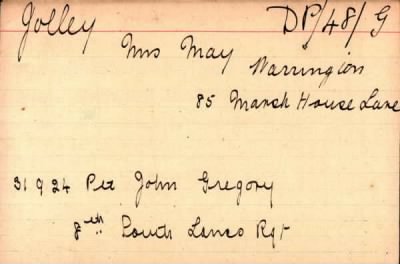 Jolley DP/48/G
Mrs May
Warrington
85 Marsh House Lane
31924 Pte John Gregory
8th South Lancs Rgt